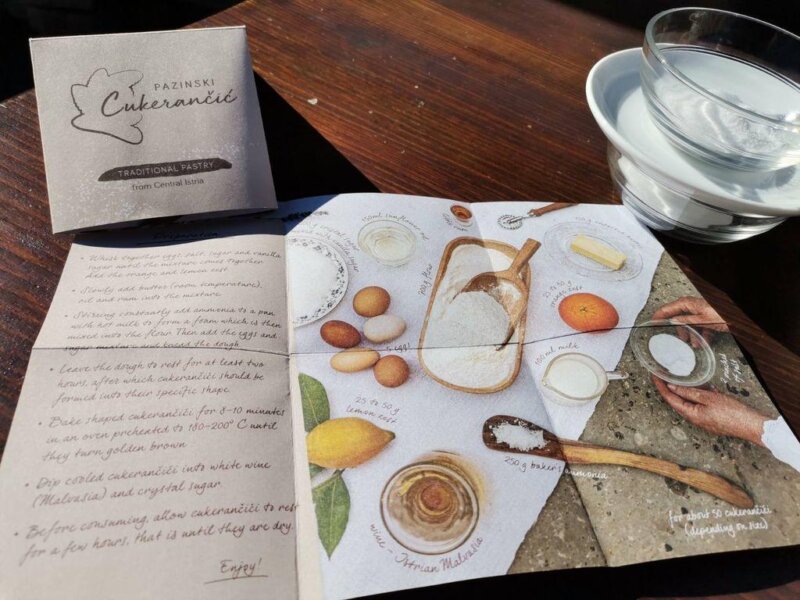 PAZINSKI
Cukerančić
TRADITIONAL PASTRY
from Central Istria
• Whisk together eggs, salt, sugar and vanilla
sugar until the mixture comes together
Add the orange and lemon zest
• Slowly add butter (room temperature),
oil and rum into the mixture
• Stirring constantly add ammonia to a pan
with hot milk to form a foam which is then
mixed into the flour. Then add the eggs and
sugar mixture and knead the dough
• Leave the dough to rest for at least two
hours, after which cukerančići should be
formed into their specific shape.
• Bake shaped cukerančići for 8-10 minutes
in an oven preheated to 180-200° C until
they turn golden brown
• Dip cooled cukerančići into white wine
(Malvasia) and crystal sugar
• Before consuming, allow cukerančići to rest
for a few hours, that is until they are dry.
Enjoy!
150ml sunflower oil
flour
25 to 50 g
orange zest
100 ml milk
25 to 50 g
lemon zest
250 g baker's ammonia
wine - Istrian Malvasia
for about 50 cukerančići
(depending on size)